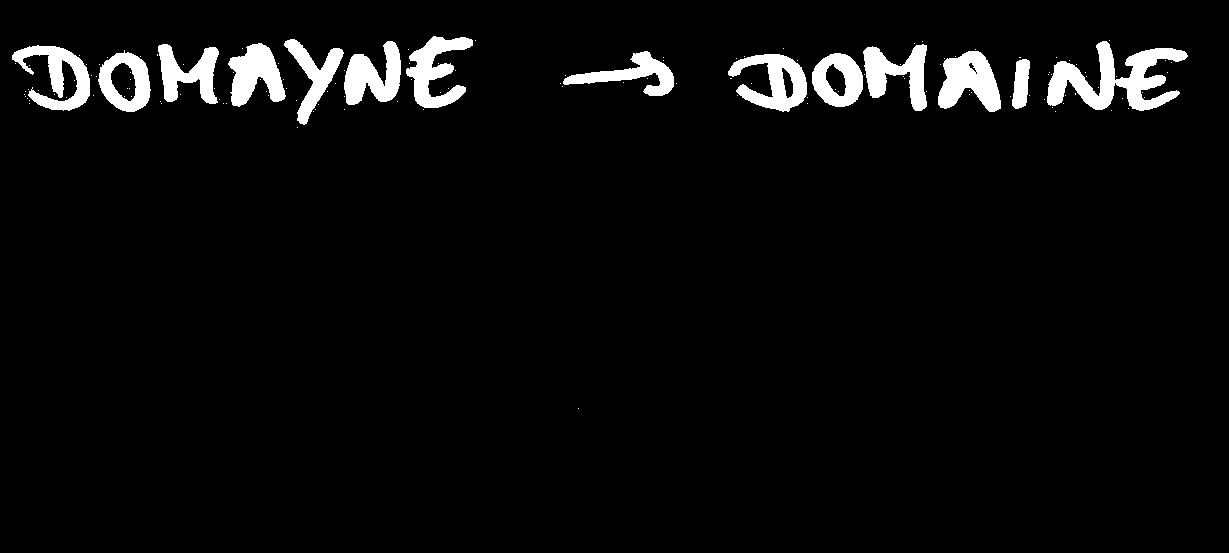 DOMAYNE → DOMAINE